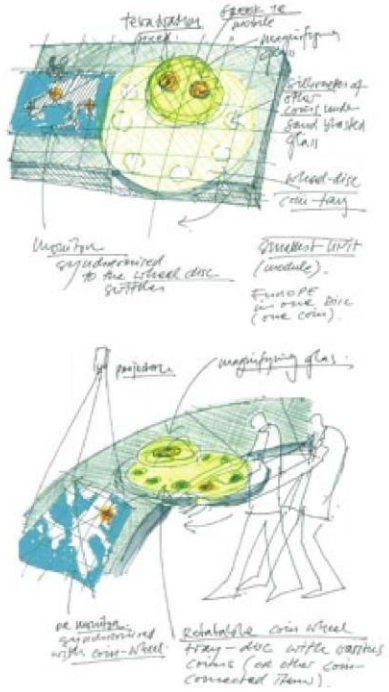 mobile
magnifying
glass
silhouettes of
other
coins under
sand blasted
glass
wheel-disc
coin-tray
monitor
synchronised
to the wheel disc
smallest unit
(module).
EUROPE
in one disc
(one coin).
projection
magnifying glas.
or monitor
synchronised
with coin-wheel.
Rotatable coin wheel
tray-disc with various
coins (or other coin-
connected items).